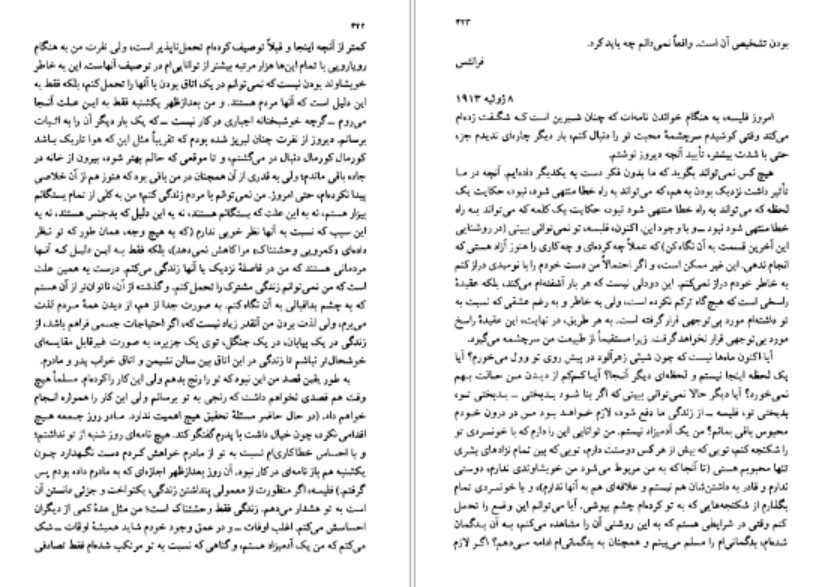 ۴۲۲
کمتر از آنچه اینجا و قبلاً توصیف کرده‌ام تحمل‌ناپذیر است، ولی نفرت من به هنگام
رویارویی با تمام این‌ها هزار مرتبه بیشتر از توانایی‌ام در توصیف آنهاست. این به خاطر
خویشاوند بودن نیست که نمی‌توانم در یک اتاق بودن با آنها را تحمل کنم، بلکه فقط به
این دلیل است که آنها مردم هستند. و من بعدازظهر یکشنبه فقط به این علت آنجا
می‌روم ــ گرچه خوشبختانه اجباری در کار نیست ــ که یک بار دیگر آن را به اثبات
برسانم. دیروز از نفرت چنان لبریز شده بودم که تقریباً مثل این که هوا تاریک باشد
کورمال کورمال دنبال در می‌گشتم، و تا موقعی که حالم بهتر شود، بیرون از خانه در
جاده باقی ماندم؛ ولی به قدری از آن همچنان در من باقی بود که هنوز هم از آن خلاصی
پیدا نکرده‌ام، حتی امروز. من نمی‌توانم با مردم زندگی کنم؛ من به کلی از تمام بستگانم
بیزار هستم، نه به این علت که بستگانم هستند، نه به این دلیل که بدجنس هستند، نه به
این سبب که نسبت به آنها نظر خوبی ندارم (که به هیچ وجه، همان طور که تو نظر
داده‌ای «کمرویی وحشتناک» مرا کاهش نمی‌دهد)، بلکه فقط به این دلیل که آنها
مردمانی هستند که من در فاصلهٔ نزدیک با آنها زندگی می‌کنم. درست به همین علت
است که من نمی‌توانم زندگی مشترک را تحمل کنم، و گذشته از آن، ناتوان‌تر از آن هستم
که به چشم بداقبالی به آن نگاه کنم. به صورت جدا از هم، از دیدن همهٔ مردم لذت
می‌برم، ولی لذت بردن من آنقدر زیاد نیست که، اگر احتیاجات جسمی فراهم باشد، از
زندگی در یک بیابان، در یک جنگل، توی یک جزیره، به صورت غیرقابل مقایسه‌ای
خوشحال‌تر نباشم تا زندگی در این اتاق بین سالن نشیمن و اتاق خواب پدر و مادرم.
به طور یقین قصد من این نبود که تو را رنج بدهم ولی این کار را کرده‌ام. مسلماً هیچ
وقت هم قصدی نخواهم داشت که رنجی به تو برسانم ولی این کار را همواره انجام
خواهم داد. (در حال حاضر مسئلهٔ تحقیق هیچ اهمیت ندارد. مادر روز جمعه هیچ
اقدامی نکرده، چون خیال داشت با پدرم گفتگو کند. هیچ نامه‌ای روز شنبه از تو نداشتم؛
و با احساس خطاکاری‌ام نسبت به تو از مادرم خواهش کردم دست نگهدارد چون
یکشنبه هم باز نامه‌ای در کار نبود. آن روز بعدازظهر اجازه‌ای که به مادرم داده بودم پس
گرفتم.) فلیسه، اگر منظورت از معمولی پنداشتن زندگی، یکنواخت و جزئی دانستن آن
است به تو هشدار می‌دهم. زندگی فقط وحشتناک است؛ من مثل عدهٔ کمی از دیگران
احساسش می‌کنم. اغلب اوقات ــ و در عمق وجود خودم شاید همیشهٔ اوقات ــ شک
می‌کنم که من یک آدمیزاد هستم، و گناهی که نسبت به تو مرتکب شده‌ام فقط تصادفی
۴۲۳
بودن تشخیص آن است. واقعاً نمی‌دانم چه باید کرد.
فرانتس
۸ ژوئیه ۱۹۱۳
امروز فلیسه، به هنگام خواندن نامه‌ات که چنان شیرین است که شگفت زده‌ام
می‌کند وقتی کوشیدم سرچشمهٔ محبت تو را دنبال کنم، بار دیگر چاره‌ای ندیدم جز،
حتی با شدت بیشتر، تأیید آنچه دیروز نوشتم.
هیچ کس نمی‌تواند بگوید که ما بدون فکر دست به یکدیگر داده‌ایم. آنچه در ما
تأثیر داشت نزدیک بودن به هم، که می‌تواند به راه خطا منتهی شود، نبود، حکایت یک
لحظه که می‌تواند به راه خطا منتهی شود نبود، حکایت یک کلمه که می‌تواند به راه
خطا منتهی شود نبود ــ و با وجود این. اکنون، فلیسه، تو نمی‌توانی ببینی (در روشنایی
این آخرین قسمت به آن نگاه کن) که عملاً چه کرده‌ای و چه کاری را هنوز آزاد هستی که
انجام ندهی. این غیر ممکن است، و اگر احتمالاً من دست خودم را با نومیدی دراز کنم
به خاطر خودم دراز نمی‌کنم. این دودلی نیست که هر بار آشفته‌ام می‌کند، بلکه عقیدهٔ
راسخی است که هیچ‌گاه ترکم نکرده است، ولی به خاطر و به رغم عشقی که نسبت به
تو داشته‌ام مورد بی‌توجهی قرار گرفته است. به هر طریق، در نهایت، این عقیدهٔ راسخ
مورد بی‌توجهی قرار نخواهد گرفت. زیرا مستقیماً از طبیعت من سرچشمه می‌گیرد.
آیا اکنون ماه‌ها نیست که چون شیئی زهرآلود در پیش روی تو وول می‌خورم؟ آیا
یک لحظه اینجا نیستم و لحظه‌ای دیگر آنجا؟ آیا کم‌کم از دیدن من حالت بهم
نمی‌خورد؟ آیا دیگر حالا نمی‌توانی ببینی که اگر بنا شود بدبختی ــ بدبختی تو،
بدبختی تو، فلیسه ــ از زندگی ما دفع شود، لازم خواهد بود من در درون خودم
محبوس باقی بمانم؟ من یک آدمیزاد نیستم. من توانایی این را دارم که با خونسردی تو
را شکنجه کنم، تویی که بیش از هر کس دوستت دارم، تویی که بین تمام نژادهای بشری
تنها محبوبم هستی (تا آنجا که به من مربوط می‌شود من خویشاوندی ندارم، دوستی
ندارم و قادر به داشتن‌شان هم نیستم و علاقه‌ای هم به آنها ندارم)، و با خونسردی تمام
بگذارم از شکنجه‌هایی که به تو کرده‌ام چشم بپوشی. آیا می‌توانم این وضع را تحمل
کنم وقتی در شرایطی هستم که به این روشنی آن را مشاهده می‌کنم، به آن بدگمان
شده‌ام، بدگمانی‌ام را مسلم می‌بینم و همچنان به بدگمانی‌ام ادامه می‌دهم؟ اگر لازم